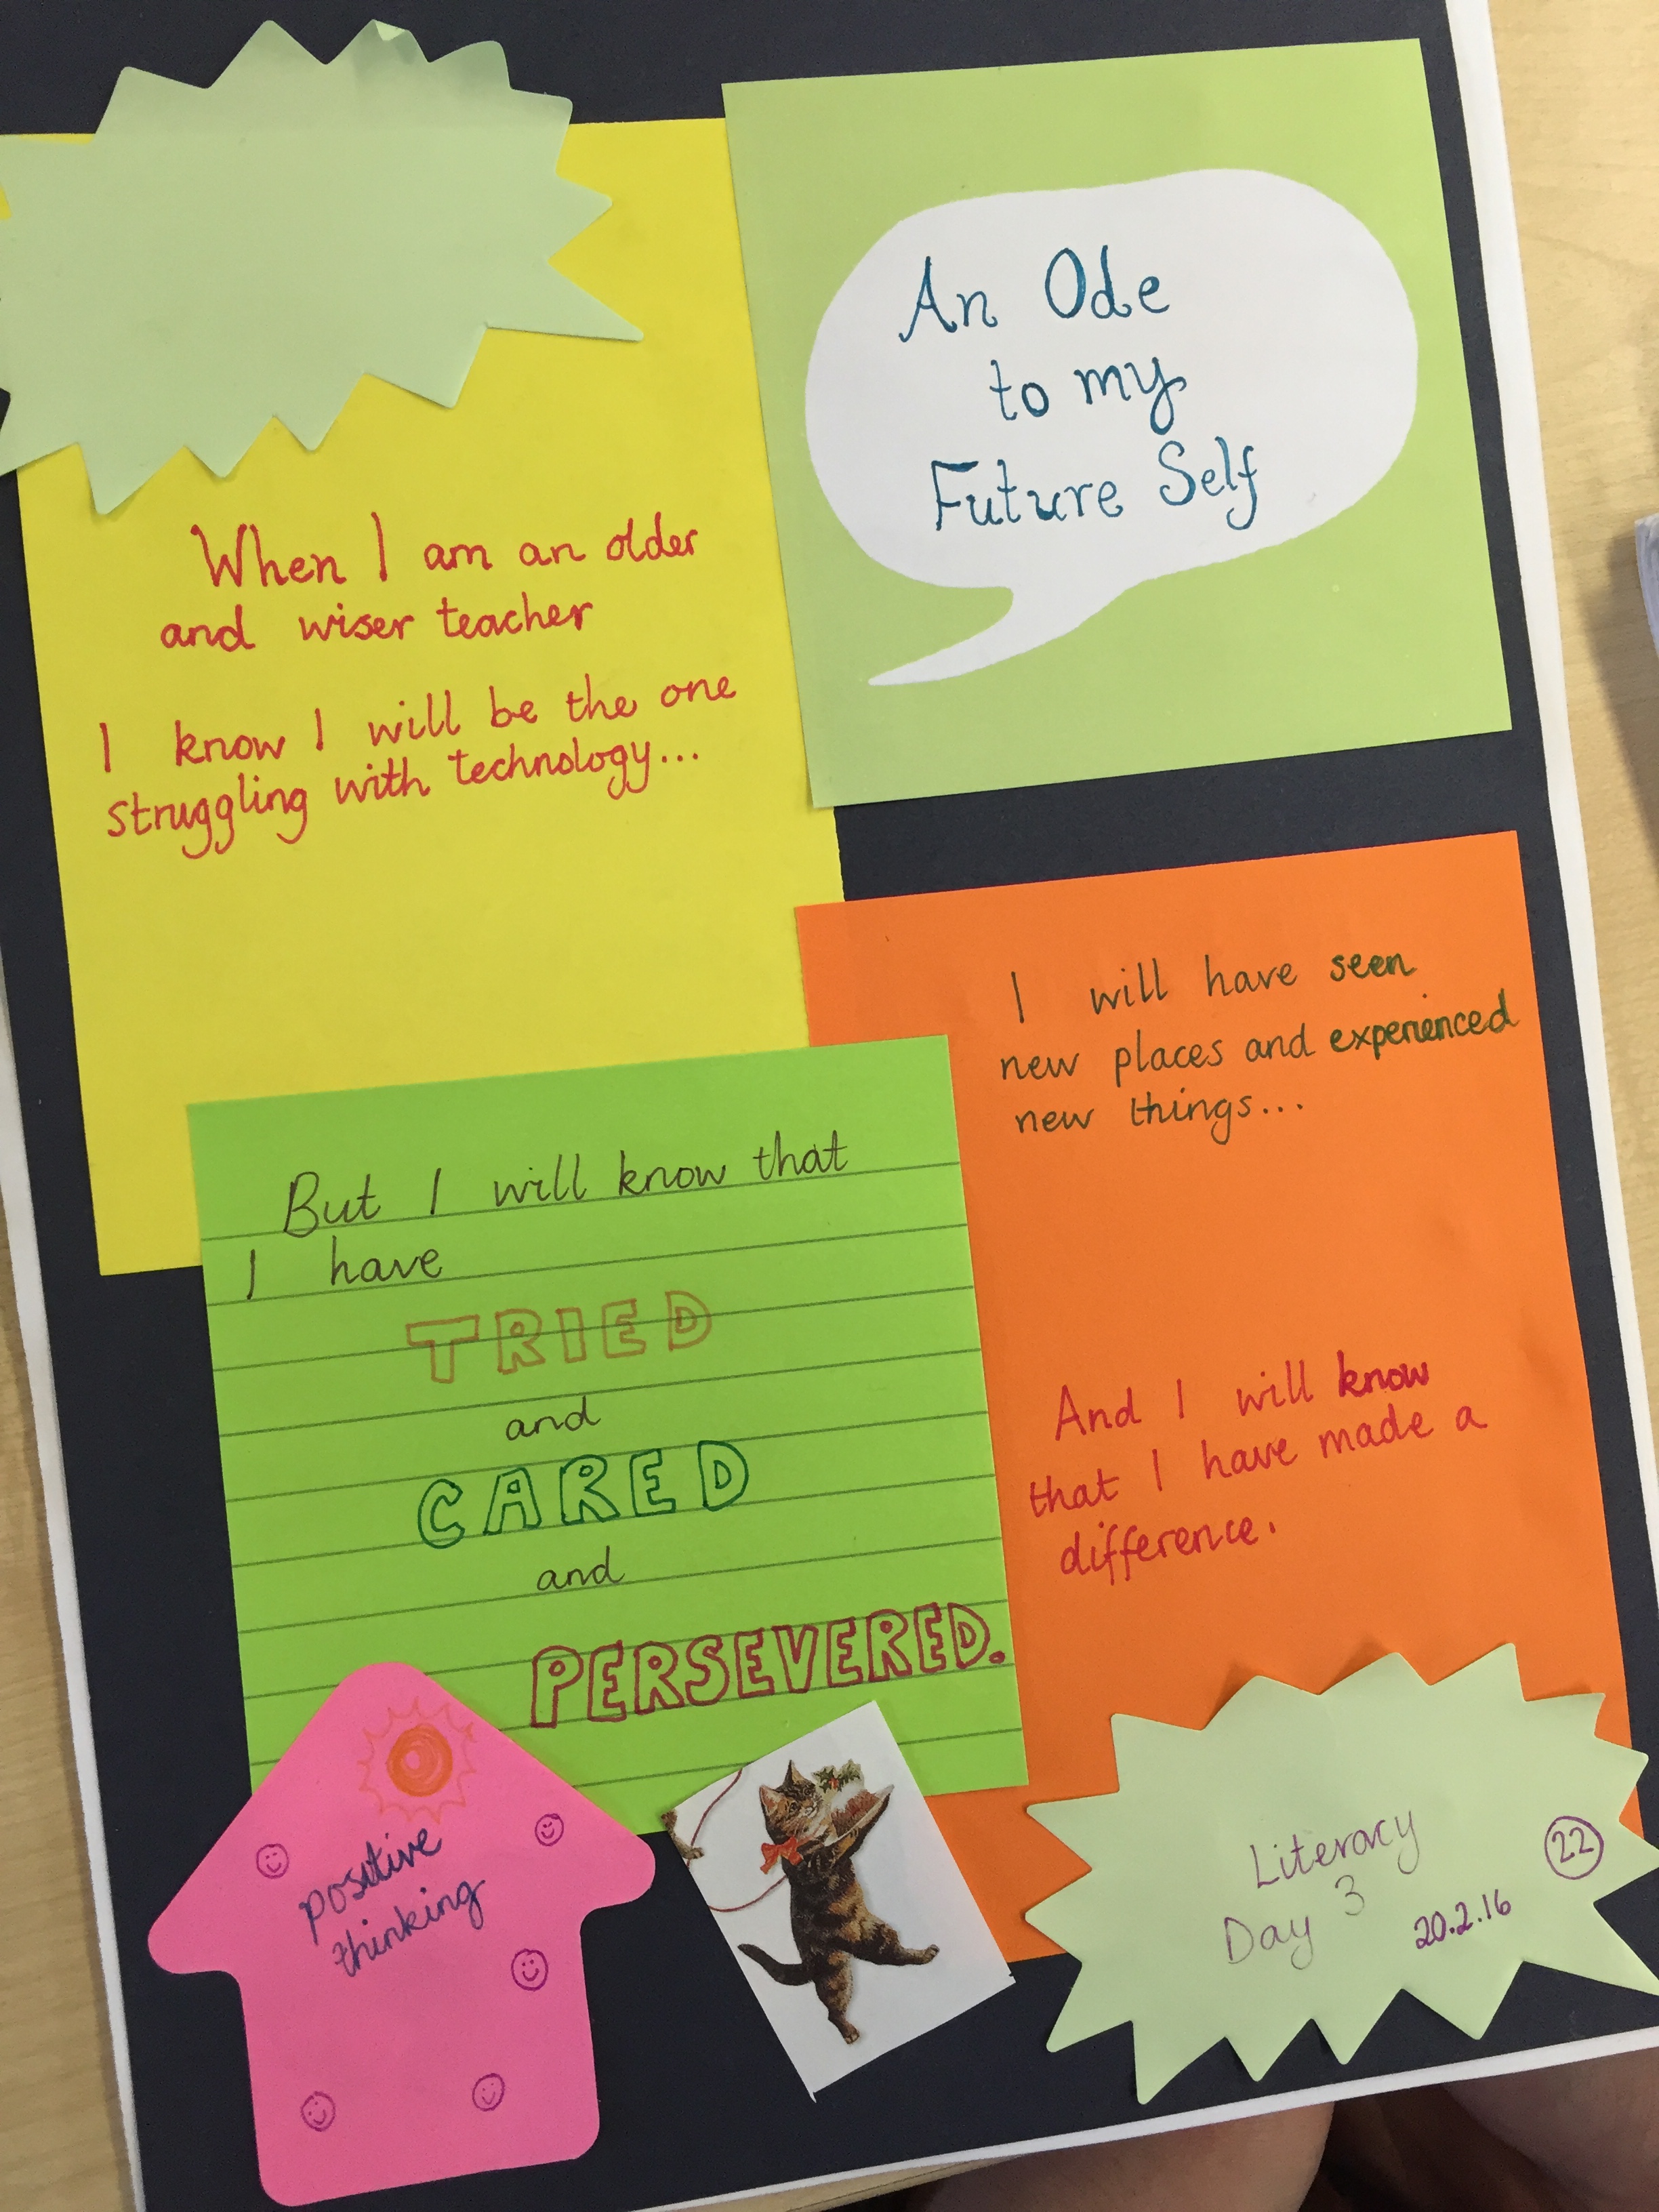 An Ode
to my
Future Self
When I am an older
and wiser teacher
I know I will be the one
struggling with technology...
I will have seen
new places and experienced
new things...
But I will know that
I have
TRIED
and
CARED
and
PERSEVERED.
And I will know
that I have made a
difference.
positive
thinking
Literacy
Day 3
20.2.16
22